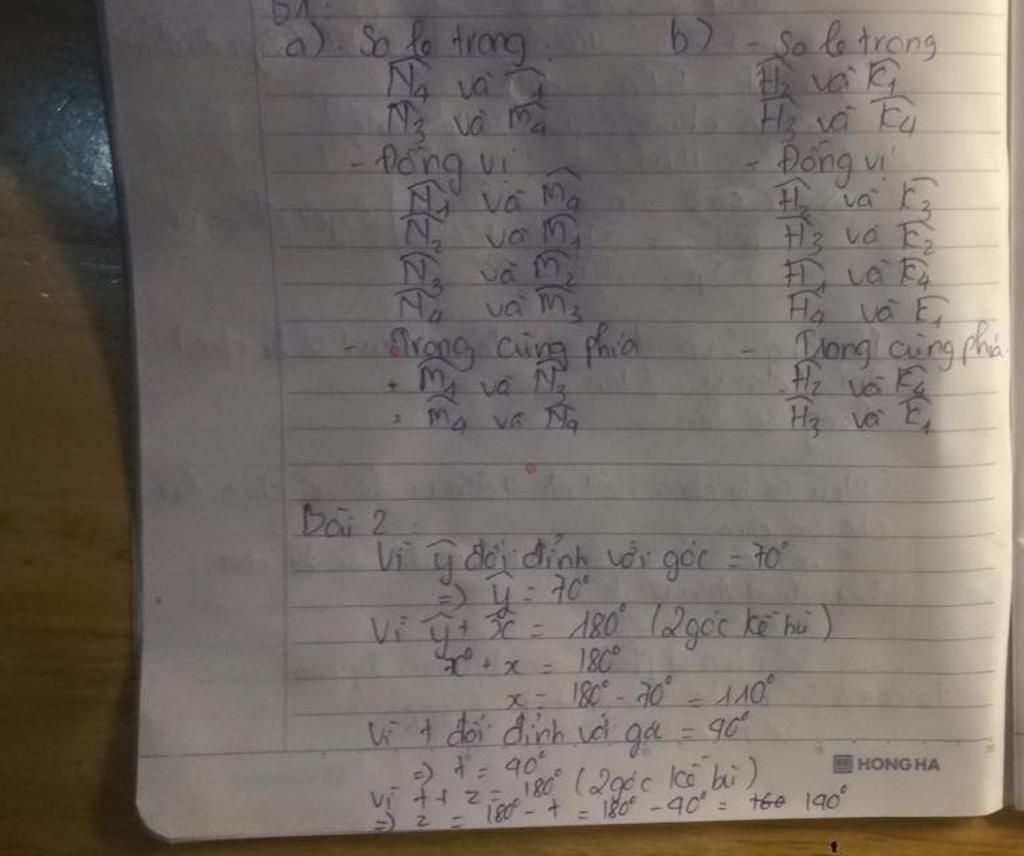 B1:
a) - So le trong
N̂4 và 1
N̂3 và M̂4
- Đồng vị
N̂1 và M̂4
N̂2 và M̂1
N̂3 và M̂2
N̂4 và M̂3
- Trong cùng phía
+ M̂1 và N̂3
+ M̂4 và N̂4
b) - So le trong
Ĥ2 và Ê1
Ĥ3 và Ê4
- Đồng vị
Ĥ2 và Ê3
Ĥ3 và Ê2
Ĥ1 và Ê4
Ĥ4 và Ê1
- Trong cùng phía
Ĥ2 và Ê4
Ĥ3 và Ê1
Bài 2:
Vì ŷ đối đỉnh với góc = 70°
=> ŷ = 70°
Vì ŷ + x̂ = 180° (2 góc kề bù)
+ x = 180°
x = 180° - 70° = 110°
Vì t đối đỉnh với góc = 40°
=> t = 40°
Vì t + z = 180° (2 góc kề bù)
=> z = 180° - t = 180° - 40° = 140°
HONG HA